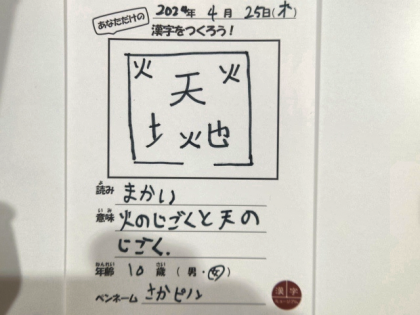 2024年 4月 25日(木)
あなただけの
漢字をつくろう!
火 天 火
土 火 也
よ
読み まかい
いみ
意味 火のじごくと天の
じごく.
ねんれい さい
年齢 10 歳 (男・女)
ペンネーム さかピル
漢字